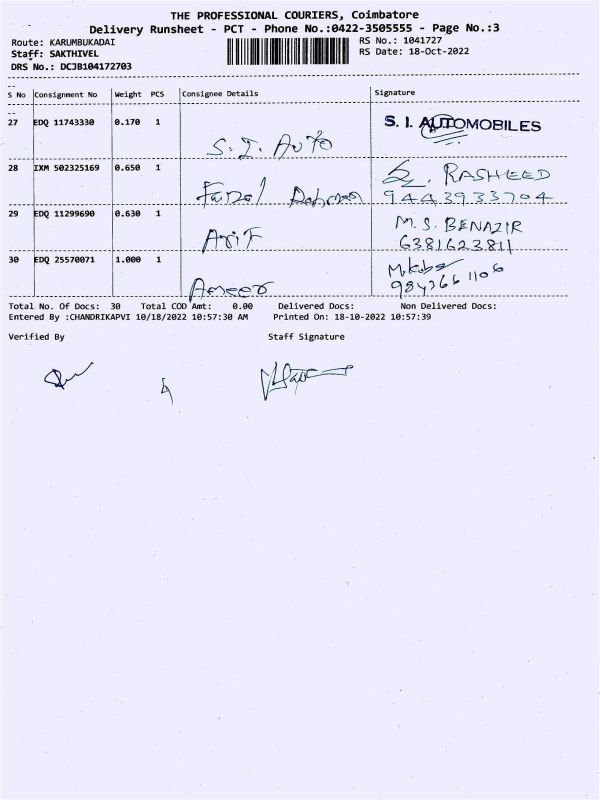 THE PROFESSIONAL COURIERS, Coimbatore
Delivery Runsheet - PCT - Phone No.:0422-3505555 - Page No.:3
Route: KARUMBUKADAI RS No.: 1041727
Staff: SAKTHIVEL RS Date: 18-Oct-2022
DRS No.: DCJB104172703
S No Consignment No Weight PCS Consignee Details Signature
27 EDQ 11743330 0.170 1 S. I. AUTOMOBILES
S. I. Auto
28 IXM 502325169 0.650 1 RASHEED
Faizal Rahman 9443933704
29 EDQ 11299690 0.630 1 M. S. BENAZIR
Asif 6381623811
30 EDQ 25570071 1.000 1
Ameer 9843661106
Total No. Of Docs: 30 Total COD Amt: 0.00 Delivered Docs: Non Delivered Docs:
Entered By :CHANDRIKAPVI 10/18/2022 10:57:30 AM Printed On: 18-10-2022 10:57:39
Verified By Staff Signature